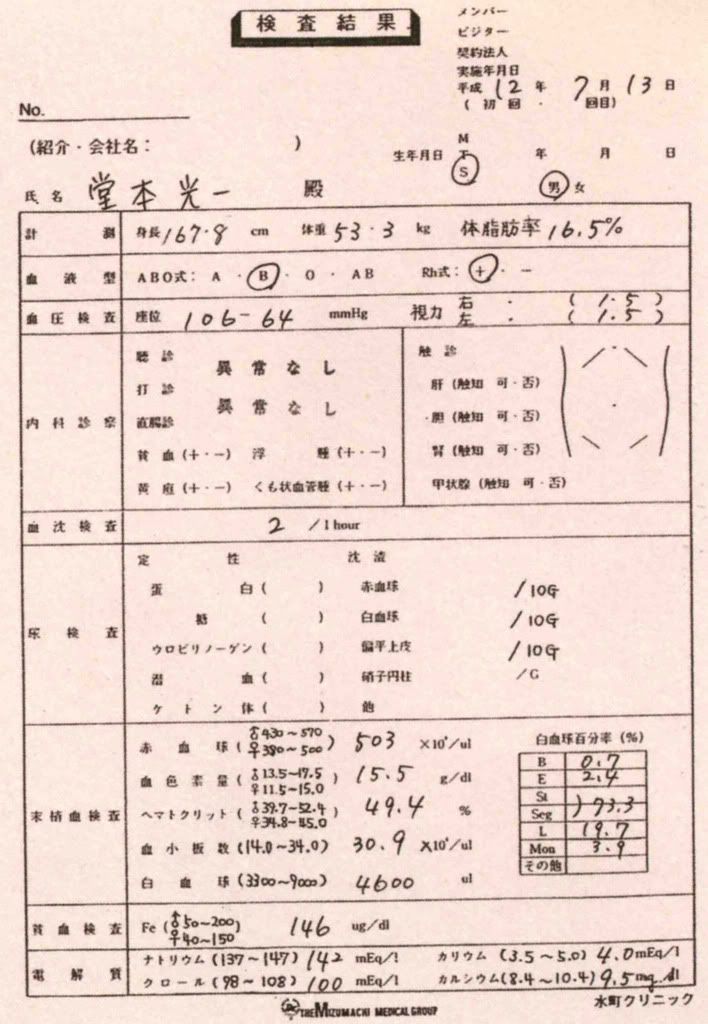 検査結果
メンバー
ビジター
契約法人
実施年月日
平成 12 年 7 月 13 日
(初回・ 回目)
No.
(紹介・会社名: )
生年月日 M T S 年 月 日
氏名 堂本光一 殿 男 女
計測 身長 167.8 cm 体重 53.3 kg 体脂肪率 16.5%
血液型 ABO式: A ・ B ・ O ・ AB Rh式: + ・ −
血圧検査 座位 106-64 mmHg 視力 右 ・ (1.5)
左 ・ (1.5)
内科診察
聴診 異常なし
打診 異常なし
直腸診
貧血 (+・−) 浮腫 (+・−)
黄疸 (+・−) くも状血管腫 (+・−)
触診
肝 (触知 可・否)
・胆 (触知 可・否)
腎 (触知 可・否)
甲状腺 (触知 可・否)
血沈検査 2 /1 hour
尿検査
定性 沈渣
蛋白 ( ) 赤血球 /10G
糖 ( ) 白血球 /10G
ウロビリノーゲン ( ) 偏平上皮 /10G
潜血 ( ) 硝子円柱 /G
ケトン体 ( ) 他
末梢血検査
赤血球 (♂430~570 ♀380~500) 503 ×10⁴/ul
血色素量 (♂13.5~17.5 ♀11.5~15.0) 15.5 g/dl
ヘマトクリット (♂39.7~52.4 ♀34.8~45.0) 49.4 %
血小板数 (14.0~34.0) 30.9 ×10⁴/ul
白血球 (3300~9000) 4600 ul
白血球百分率 (%)
B 0.7
E 2.4
St
Seg ) 73.3
L 19.7
Mon 3.9
その他
貧血検査 Fe (♂50~200 ♀40~150) 146 ug/dl
電解質
ナトリウム (137~147) 142 mEq/l カリウム (3.5~5.0) 4.0 mEq/l
クロール (98~108) 100 mEq/l カルシウム (8.4~10.4) 9.5 mg/dl
THE MIZUMACHI MEDICAL GROUP
水町クリニック